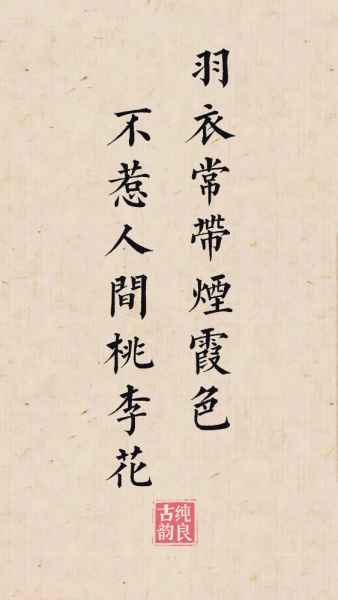 羽衣常帶煙霞色
不惹人間桃李花
纯良
古韵